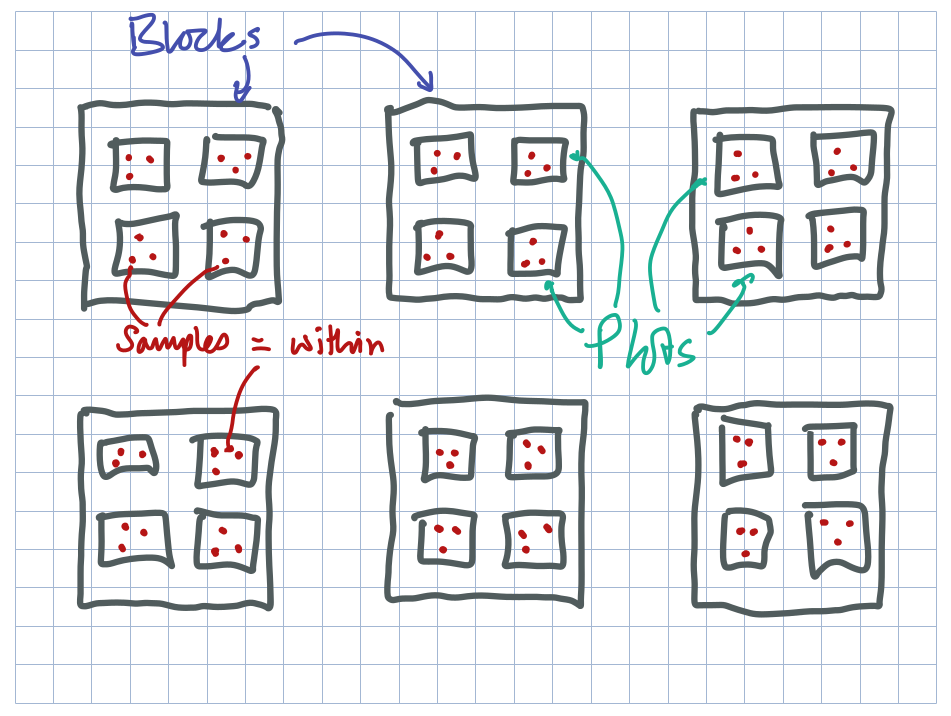 Blocks
Samples = within
Plots